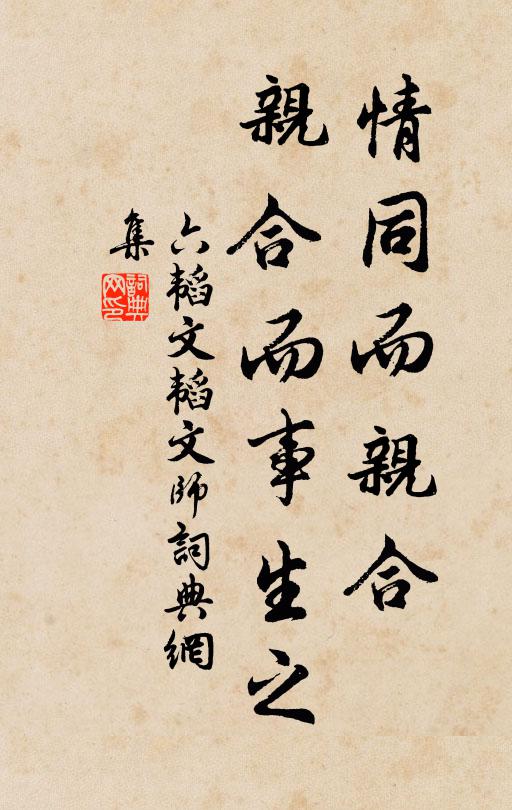 情同而親合
親合而事生之
六韬文韬文师詞典網
集
詞典
网印